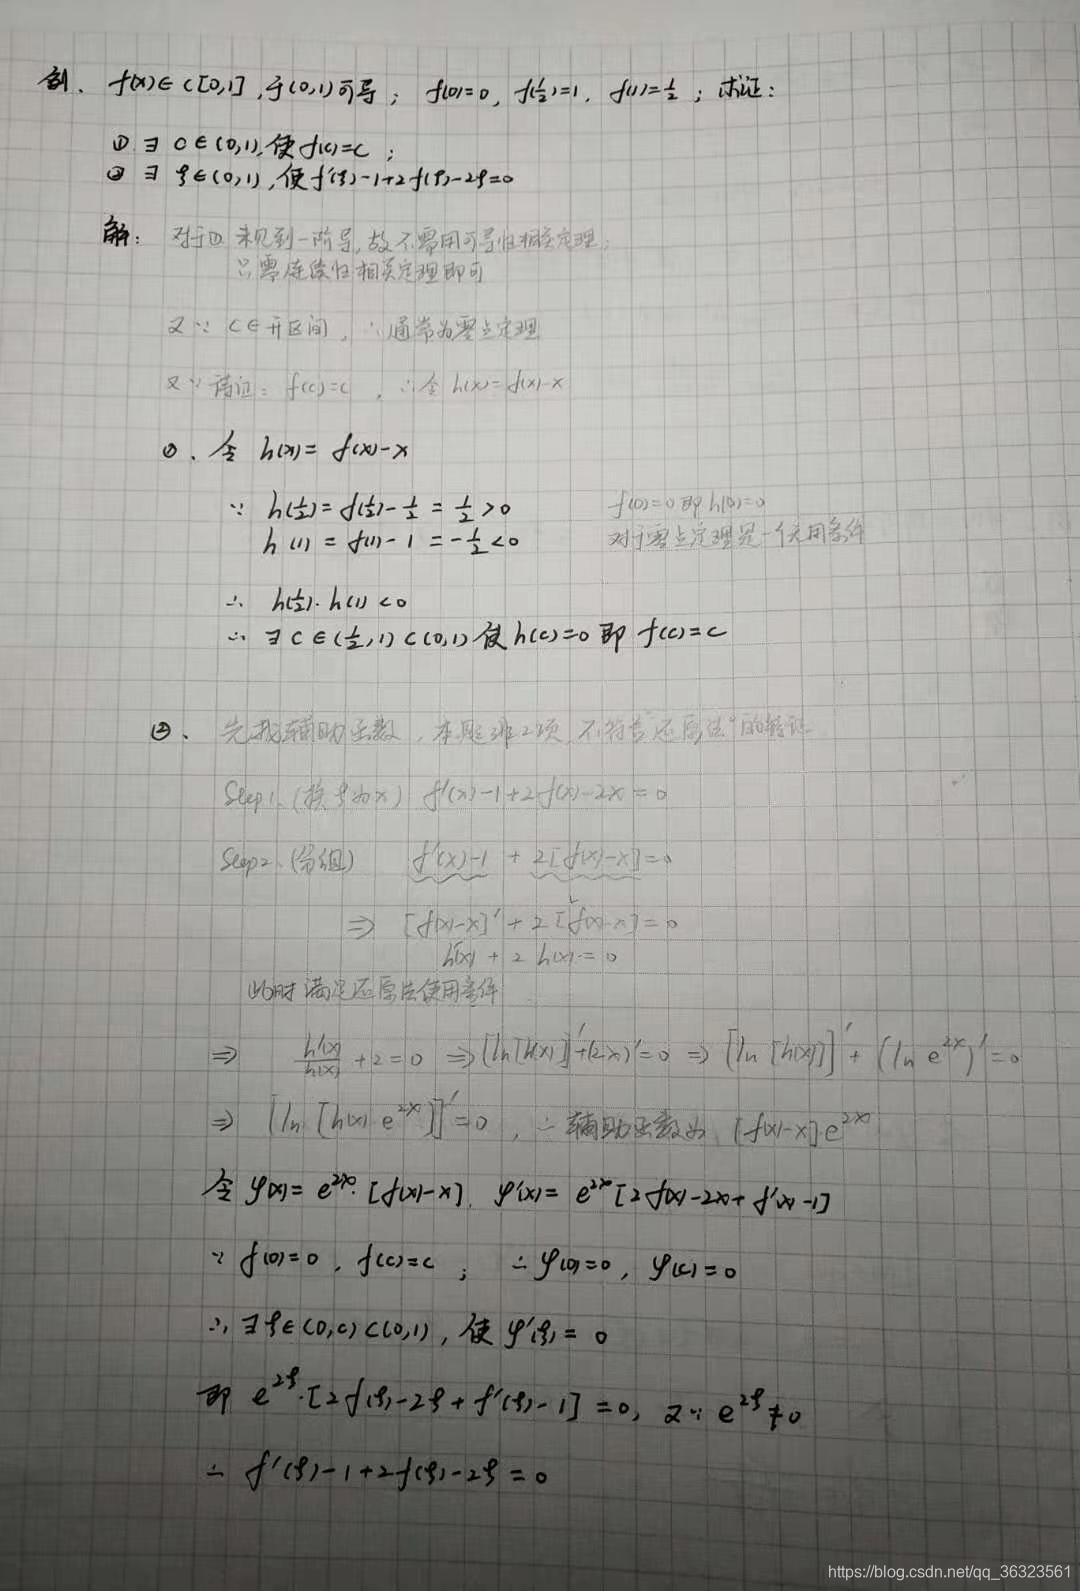 例、f(x)∈C[0,1],于(0,1)可导; f(0)=0, f(1/2)=1, f(1)=1/2; 求证:
① ∃ C∈(0,1),使f(c)=c;
② ∃ ξ∈(0,1),使f'(ξ)-1+2f(ξ)-2ξ=0
解: 对于① 未见到一阶导,故不需用可导性相关定理;
只需连续性相关定理即可
又∵ C∈开区间, ∴通常为零点定理
又∵ 请证: f(c)=c ,∴令 h(x)=f(x)-x
①、令 h(x)= f(x)-x
∵ h(1/2)=f(1/2)-1/2 = 1/2 >0 f(0)=0即h(0)=0
h(1) = f(1)-1 =-1/2<0 对于零点定理是一个无用条件
∴ h(1/2)·h(1)<0
∴ ∃ C∈(1/2,1)⊂(0,1)使h(c)=0即 f(c)=c
②、先找辅助函数,本题非2项,不符合"还原法"的特征
Step1、(换ξ为x) f'(x)-1+2f(x)-2x=0
Step2、(分组) f'(x)-1 + 2[f(x)-x]=0
⇒ [f(x)-x]' + 2[f(x)-x]=0
h'(x) + 2h(x)=0
此时满足还原法使用条件
⇒ h'(x)/h(x) +2=0 ⇒[ln[h(x)]]'+(2x)'=0 ⇒ [ln[h(x)]]'+(ln e^{2x})'=0
⇒ [ln[h(x)·e^{2x}]]'=0 ,∴辅助函数为 [f(x)-x]·e^{2x}
令 φ(x)= e^{2x}·[f(x)-x]. φ'(x)= e^{2x}[2f(x)-2x+f'(x)-1]
∵ f(0)=0, f(c)=c ; ∴φ(0)=0, φ(c)=0
∴ ∃ξ∈(0,c)⊂(0,1),使 φ'(ξ)=0
即 e^{2ξ}·[2f(ξ)-2ξ+f'(ξ)-1]=0, 又∵ e^{2ξ}≠0
∴ f'(ξ)-1+2f(ξ)-2ξ=0
https://blog.csdn.net/qq_36323561